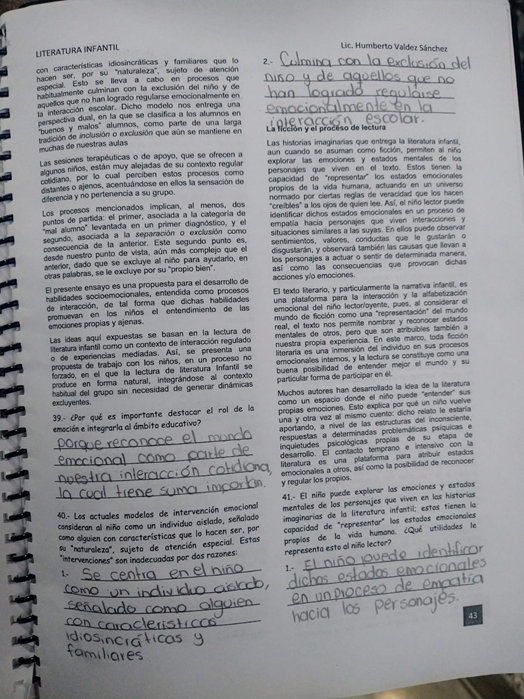 LITERATURA INFANTIL
Lic. Humberto Valdez Sánchez
con características idiosincráticas y familiares que lo
hacen ser, por su "naturaleza", sujeto de atención
especial. Esto se lleva a cabo en procesos que
habitualmente culminan con la exclusión del niño y de
aquellos que no han logrado regularse emocionalmente en
la interacción escolar. Dicho modelo nos entrega una
perspectiva dual, en la que se clasifica a los alumnos en
"buenos y malos" alumnos, como parte de una larga
tradición de inclusión o exclusión que aún se mantiene en
muchas de nuestras aulas
Las sesiones terapéuticas o de apoyo, que se ofrecen a
algunos niños, están muy alejadas de su contexto regular
cotidiano, por lo cual perciben estos procesos como
distantes o ajenos, acentuándose en ellos la sensación de
diferencia y no pertenencia a su grupo.
Los procesos mencionados implican, al menos, dos
puntos de partida: el primer, asociada a la categoría de
"mal alumno" levantada en un primer diagnóstico, y el
segundo, asociada a la separación o exclusión como
consecuencia de la anterior. Este segundo punto es,
desde nuestro punto de vista, aún más complejo que el
anterior, dado que se excluye al niño para ayudarlo, en
otras palabras, se le excluye por su "propio bien".
El presente ensayo es una propuesta para el desarrollo de
habilidades socioemocionales, entendida como procesos
de interacción, de tal forma que dichas habilidades
promuevan en los niños el entendimiento de las
emociones propias y ajenas.
Las ideas aquí expuestas se basan en la lectura de
literatura infantil como un contexto de interacción regulado
o de experiencias mediadas. Así, se presenta una
propuesta de trabajo con los niños, en un proceso no
forzado, en el que la lectura de literatura Infantil se
produce en forma natural, integrándose al contexto
habitual del grupo sin necesidad de generar dinámicas
excluyentes.
39.- ¿Por qué es importante destacar el rol de la
emoción e integrarla al ámbito educativo?
porque reconoce el mundo
emocional como parte de
nuestra interacción cotidiana,
la cual tiene suma importan.
40.- Los actuales modelos de intervención emocional
consideran al niño como un individuo aislado, señalado
como alguien con características que lo hacen ser, por
su "naturaleza", sujeto de atención especial. Estas
"intervenciones" son inadecuadas por dos razones:
1.- Se centra en el niño
como un individuo aislado,
señalado como alguien
con característicco
idiosincráticas y
familiares
2.- Culmina con la exclusión del
niño y de aquellos que no
han logrado regularse
emocionalmente en la
interacción escolar.
La ficción y el proceso de lectura
Las historias imaginarias que entrega la literatura infantil,
aun cuando se asuman como ficción, permiten al niño
explorar las emociones y estados mentales de los
personajes que viven en el texto. Estos tienen la
capacidad de "representar" los estados emocionales
propios de la vida humana, actuando en un universo
normado por ciertas reglas de veracidad que los hacen
"creíbles" a los ojos de quien lee. Así, el niño lector puede
identificar dichos estados emocionales en un proceso de
empatía hacia personajes que viven interacciones y
situaciones similares a las suyas. En ellos puede observar
sentimientos, valores, conductas que le gustarán o
disgustarán, y observará también las causas que llevan a
los personajes a actuar o sentir de determinada manera,
así como las consecuencias que provocan dichas
acciones y/o emociones.
El texto literario, y particularmente la narrativa infantil, es
una plataforma para la interacción y la alfabetización
emocional del niño lector/oyente, pues, al considerar el
mundo de ficción como una "representación" del mundo
real, el texto nos permite nombrar y reconocer estados
mentales de otros, pero que son atribuibles también a
nuestra propia experiencia. En este marco, toda ficción
literaria es una inmersión del individuo en sus procesos
emocionales internos, y la lectura se constituye como una
buena posibilidad de entender mejor el mundo y su
particular forma de participar en él.
Muchos autores han desarrollado la idea de la literatura
como un espacio donde el niño puede "entender" sus
propias emociones. Esto explica por qué un niño vuelve
una y otra vez al mismo cuento: dicho relato le estaría
aportando, a nivel de las estructuras del inconsciente,
respuestas a determinadas problemáticas psíquicas e
inquietudes psicológicas propias de su etapa de
desarrollo. El contacto temprano e intensivo con la
literatura es una plataforma para atribuir estados
emocionales a otros, así como la posibilidad de reconocer
y regular los propios.
41.- El niño puede explorar las emociones y estados
mentales de los personajes que viven en las historias
imaginarias de la literatura infantil; estos tienen la
capacidad de "representar" los estados emocionales
propios de la vida humana. ¿Qué utilidades le
representa esto al niño lector?
1.- El niño puede identificar
dichos estados emocionales
en un proceso de empatía
hacia los personajes.
43